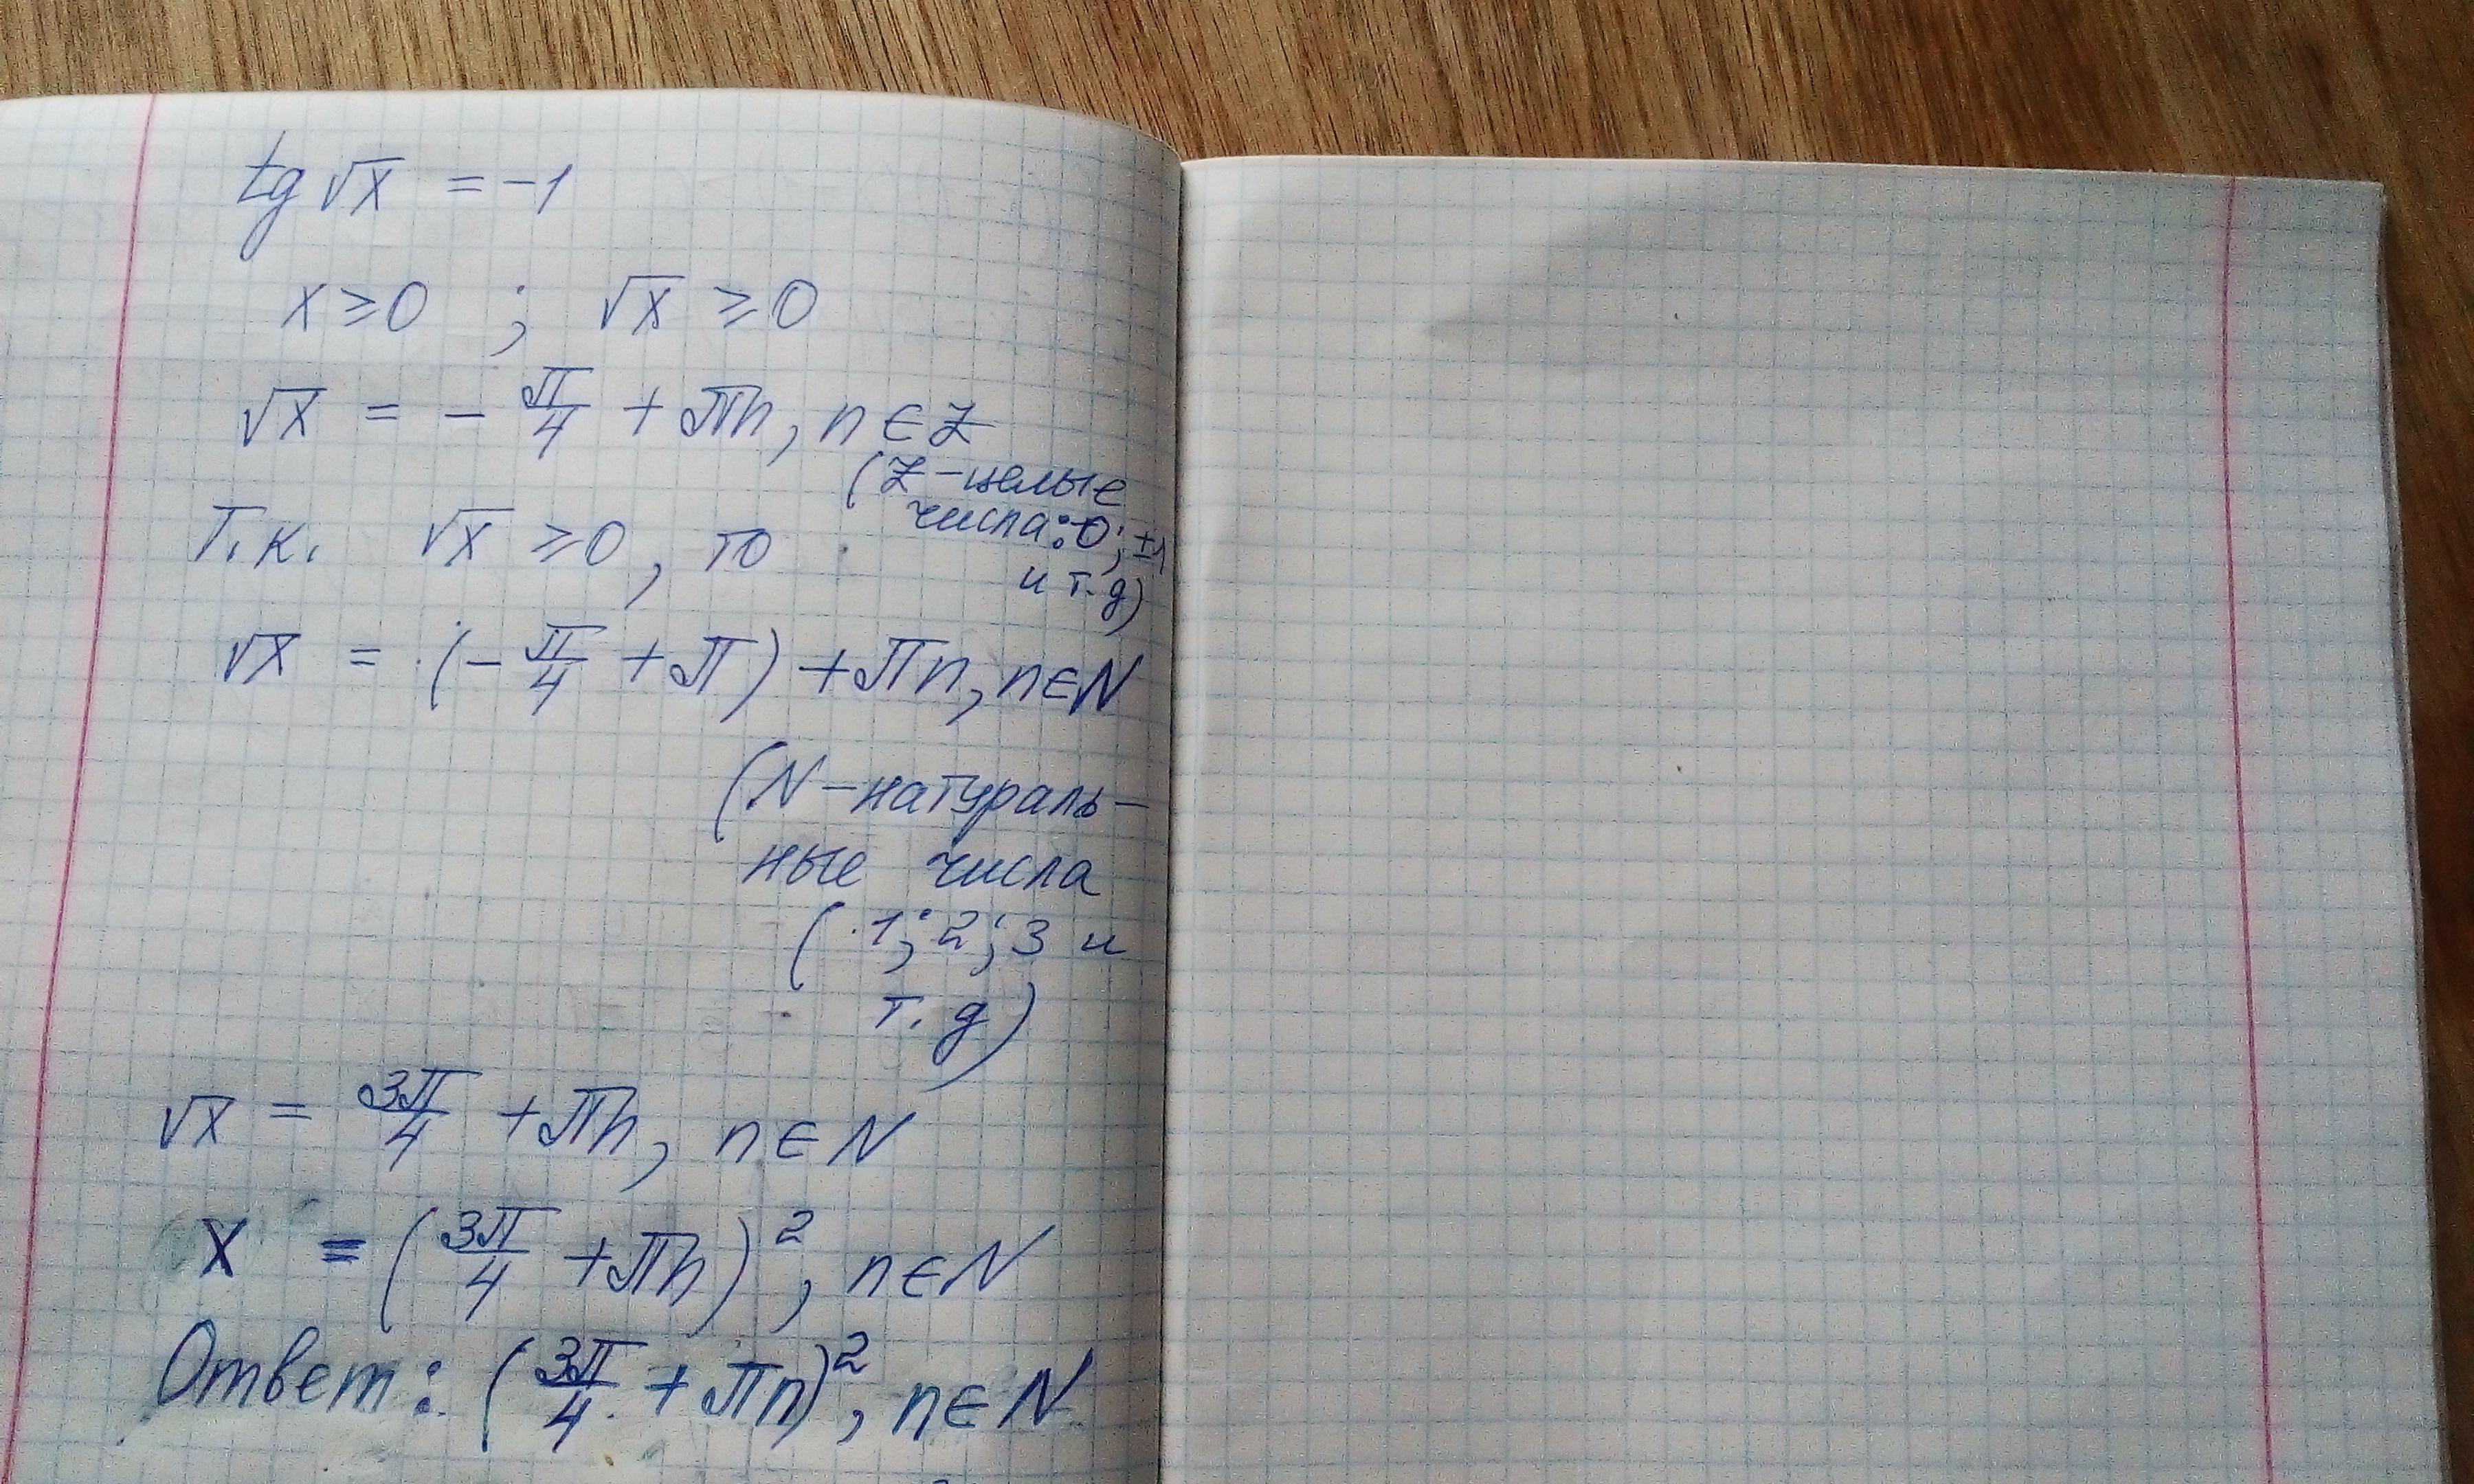 tg √x = -1
x ≥ 0 ; √x ≥ 0
√x = - π/4 + πn, n ∈ Z
(Z - целые
числа: 0; ±1
и т. д)
Т.к. √x ≥ 0, то
√x = (- π/4 + π) + πn, n ∈ N
(N - натураль-
ные числа
(1; 2; 3 и
т. д)
√x = 3π/4 + πn, n ∈ N
x = (3π/4 + πn)², n ∈ N
Ответ: (3π/4 + πn)², n ∈ N